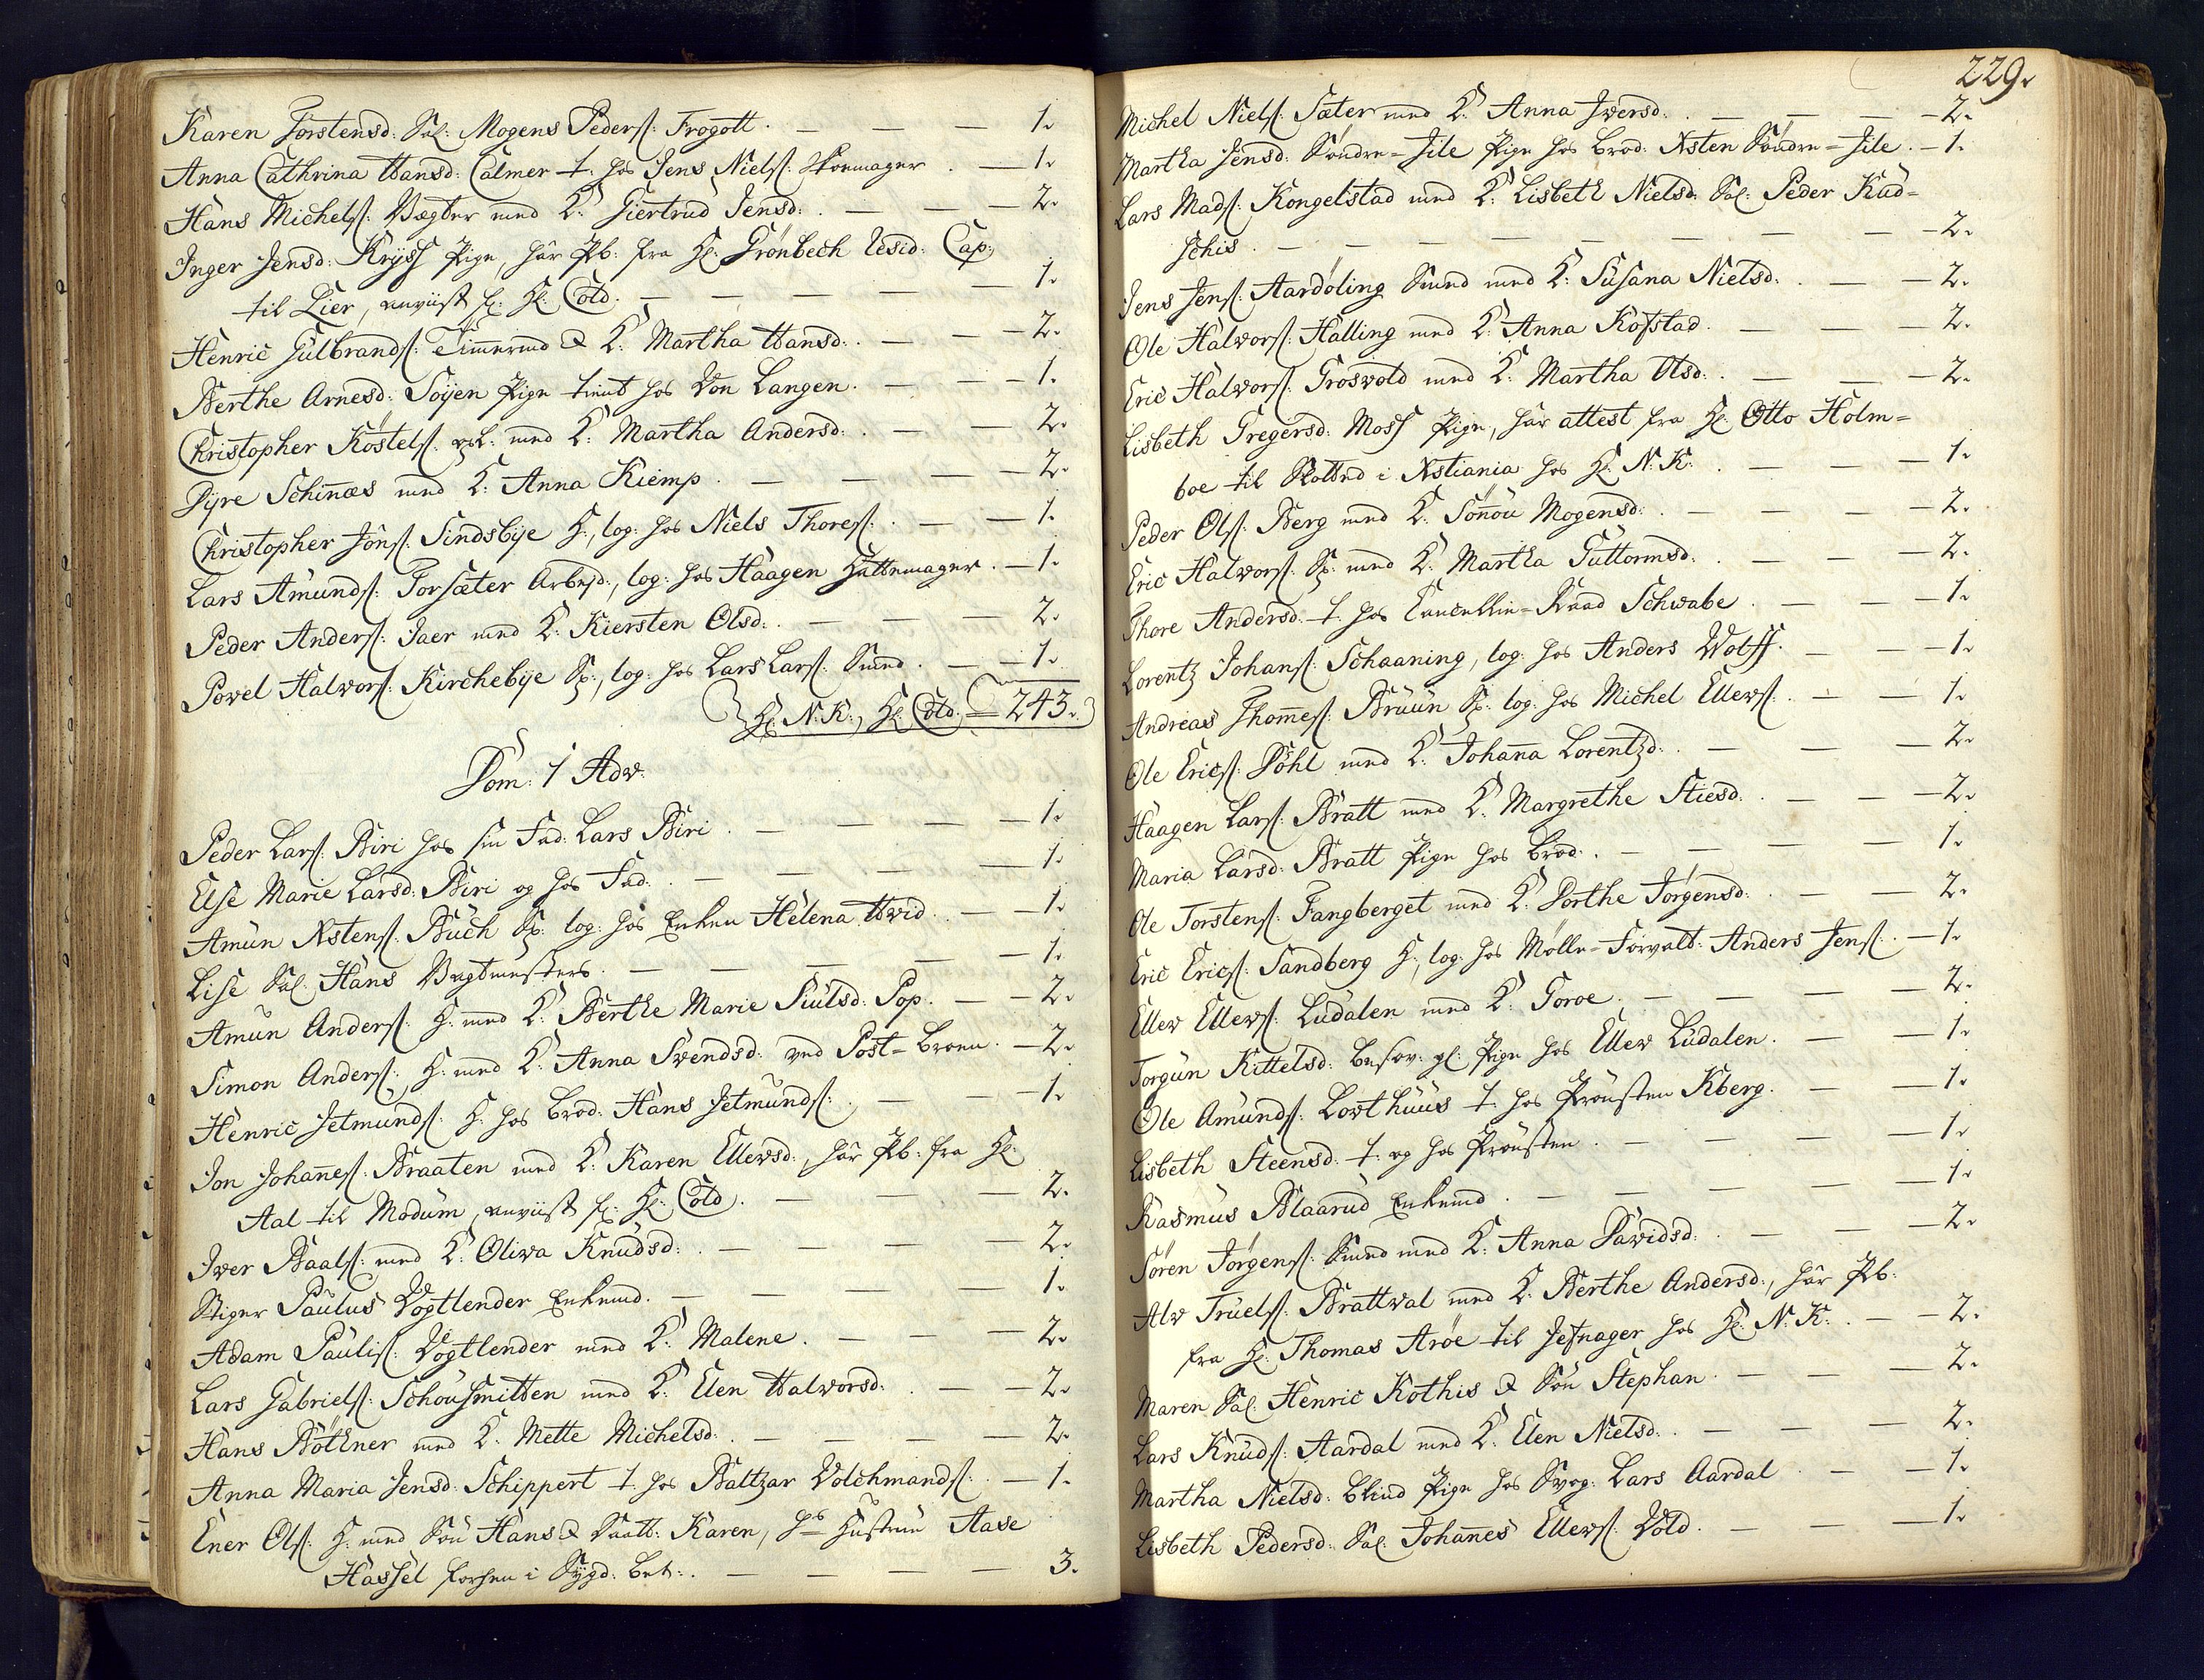 Karen Torstensd: Sal: Mogens Peders: Frogott. — — — 1.
Anna Cathrina Hansd: Calmer t. hos Jens Niels: Skoemager. — 1.
Hans Michels: Vægter med K: Giertrud Jensd: . — — — 2.
Inger Jensd: Kryss Pige, har Pb: fra Hr: Grönbech Resid: Cap:
til Lier, anviist fr: Hr: Cold. — — — — — 1.
Henric Gulbrands: Timmermd & K: Martha Hansd: . — — 2.
Berthe Arnesd: Soyen Pige tient hos Von Langen. — — 1.
Christopher Köstels: med K: Martha Andersd: . — — 2.
Dyre Schinnæs med K: Anna Kiemp. — — — — 2.
Christopher Jöns: Sindsbye H:, log: hos Niels Thores: . — — 1.
Lars Amunds: Torsæter Arbejd:, log: hos Haagen Hattemager. — 1.
Peder Anders: Jaer med K: Kiersten Olsd: . — — — 2.
Powel Halwors: Kirchebye Sp:, log: hos Lars Lars: Smed. — — 1.
Hr: N. K:, Hr: Cold. = 243.
Dom: 1 Adv:
Peder Lars: Biri hos sin Fad: Lars Biri. — — — — 1.
Else Marie Larsd: Biri og hos Fad: . — — — — 1.
Amun Xstens: Buch Sp: log: hos Enken Helena Hvid. — — 1.
Lise Sal: Hans Vagtmesters. — — — — — 1.
Amun Anders: H: med K: Berthe Marie Siulsd: Pop. — — 2.
Simon Anders: H: med K: Anna Svendsd: ved Post-broen. — 2.
Henric Jetmunds: H: hos brod: Hans Jetmunds: . — — 1.
Jon Johannes: Braaten med K: Karen Ellewsd:, har Pb: fra Hr:
Aal til Modum, anviist fr: Hr: Cold. — — — 2.
Iver Baals: med K: Oliva Knudsd: . — — — — 2.
Stiger Paulus Vogtlender Enkemd. — — — — 1.
Adam Paulis: Vogtlender med K: Malene. — — — 2.
Lars Gabriels: Schousmitten med K: Elen Halworsd: . — — 2.
Hans Böthner med K: Mette Michelsd: . — — — — 2.
Anna Maria Jensd: Schippert t. hos Baltzar Volchmands: . — 1.
Ener Ols: H: med Sön Hans & Daatt: Karen, hs Hustrue Aase
Hassel forhen i Sygd: bet: . — — — — 3.
229.
Michel Niels: Sæter med K: Anna Iwersd: . — — — 2.
Martha Jensd: Söndre-Jile Pige hos brod: Xsten Söndre-Jile. — 1.
Lars Mads: Kongelstad med K: Lisbeth Nielsd: Sal: Peder Kud-
schis. — — — — — — — — 2.
Jens Jens: Aardöling Smed med K: Susana Nielsd: . — — 2.
Ole Halwors: Halling med K: Anna Kofstad. — — — 2.
Eric Halwors: Groswold med K: Martha Olsd: . — — — 2.
Lisbeth Gregersd: Moss Pige, har attest fra Hr: Otto Holm-
boe til Slottet i Xstiania hos Hr: N: K: . — — — 1.
Peder Ols: Berg med K: Sönnou Mogensd: . — — — 2.
Eric Halwors: Sp: med K: Martha Guttormsd: . — — — 2.
Thore Andersd: t. hos Cancellie-Raad Schwabe. — — — 1.
Lorentz Johans: Schaaning, log: hos Anders Wolff. — — 1.
Andreas Thommes: Bruun Sp: log: hos Michel Ellews: . — — 1.
Ole Erics: Döhl med K: Johanna Lorentzd: . — — — 2.
Haagen Lars: Bratt med K: Margrethe Stiesd: . — — 2.
Maria Larsd: Bratt Pige hos brod: . — — — — 1.
Ole Torstens: Fangberget med K: Dorthe Jörgensd: . — — 2.
Eric Erics: Sandberg H:, log: hos Mölle-Forvalt: Anders Jens: . — 1.
Ellew Ellews: Ludalen med K: Goroe. — — — — 2.
Torgun Kittelsd: besov: gl: Pige hos Ellew Ludalen. — — 1.
Ole Amunds: Lowthuus t. hos Prousten Kberg. — — 1.
Lisbeth Steensd: t. og hos Prousten. — — — — 1.
Rasmus Blaarud Enkemd. — — — — — 1.
Sören Jörgens: Smed med K: Anna Dawidsd: . — — — 2.
Alv Truels: Brattwal med K: Berthe Andersd:, har Pb:
fra Hr: Thomas Aröe til Jefnager hos Hr: N. K: . — — 2.
Maren Sal: Henric Kothis & Sön Stephan. — — — 2.
Lars Knuds: Aardal med K: Elen Nielsd: . — — — 2.
Martha Nielsd: blind Pige hos Svog: Lars Aardal. — — 1.
Lisbeth Pedersd: Sal: Johannes Ellews: Vold. — — — 1.